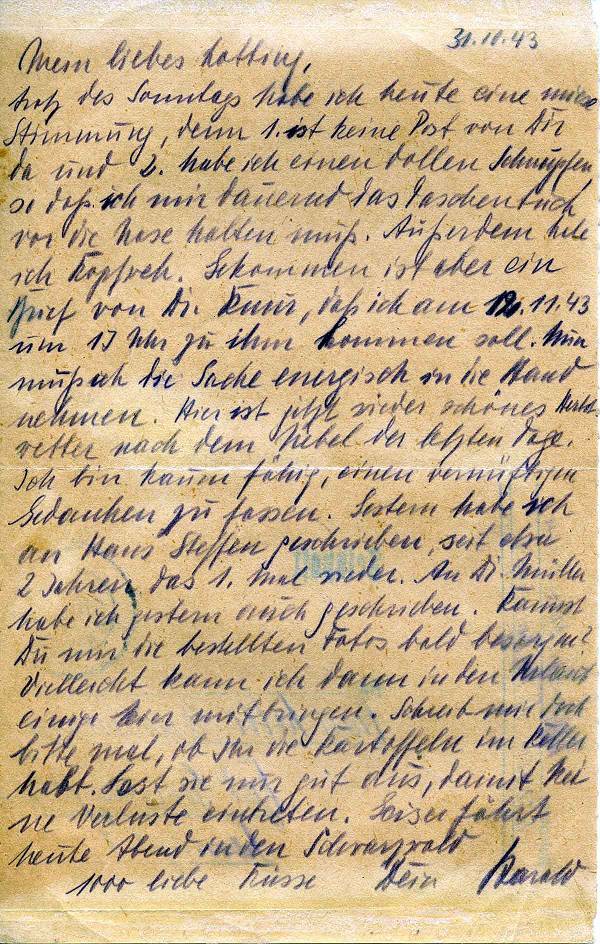 31.10.43
Mein liebes
trotz des Sonntags habe ich heute eine miese
Stimmung, denn 1. ist keine Post von Dir
da und 2. habe ich einen dollen Schnupfen,
so daß ich mir dauernd das Taschentuch
vor die Nase halten muß. Außerdem habe
ich Kopfweh. Gekommen ist aber ein
Brief von Dr. daß ich am 11.43
um 17 Uhr zu ihm kommen soll. Nun
muß ich die Sache energisch in die Hand
nehmen. Hier ist jetzt wieder schönes Herbst
wetter nach dem Nebel der letzten Tage.
Ich bin kaum fähig, einen vernünftigen
Gedanken zu fassen. Gestern habe ich
an Hans Steffen geschrieben, seit etwa
2 Jahren das 1. Mal wieder. An Dr. Müller
habe ich gestern auch geschrieben. Kannst
Du mir die bestellten Fotos bald besorgen?
Vielleicht kann ich dann in den Urlaub
einige hier mitbringen. Schreib mir doch
bitte mal, ob Ihr die Kartoffeln im Keller
habt. Lest sie nur gut aus, damit kei
ne Verluste eintreten. fährt
heute Abend in den Schwarzwald
1000 liebe Küsse Dein Harald